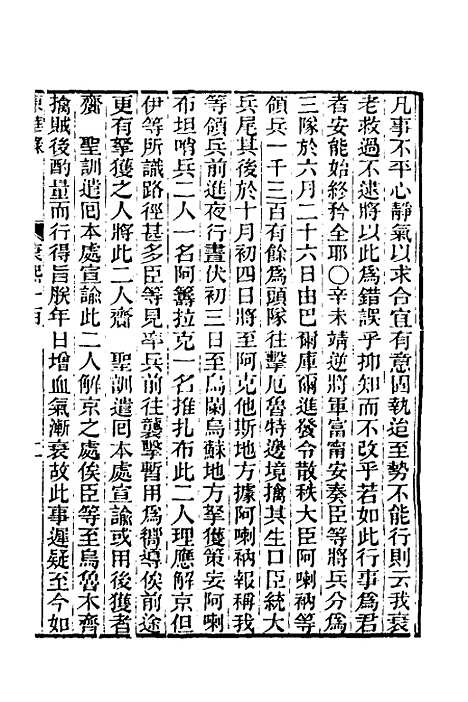 凡事不平心靜氣以求合宜有意固執迨至勢不能行則云我衰
老救過不逮將以此為錯誤乎抑知而不改乎若如此行事為君
者安能始終矜全耶○辛未靖逆將軍富甯安奏臣等將兵分為
三隊於六月二十六日由巴爾庫爾進發令散秩大臣阿喇衲等
領兵一千三百有餘為頭隊往擊厄魯特邊境擒其生口臣統大
兵尾其後於十月初四日將至阿克他斯地方據阿喇衲報稱我
等領兵前進夜行晝伏初三日至烏闌烏蘇地方拏獲策妄阿喇
布坦哨兵二人一名阿篝拉克一名推扎布此二人理應解京但
伊等所識路徑甚多臣等見率兵前往襲擊暫用為嚮導俟前途
更有拏獲之人將此二人齎 聖訓遣回本處宣諭或用後獲者
齎 聖訓遣回本處宣諭此二人解京之處俟臣等至烏魯木齊
擒賊後酌量而行得旨朕年日增血氣漸衰故此事遲疑至今如
東華錄 康熙一百